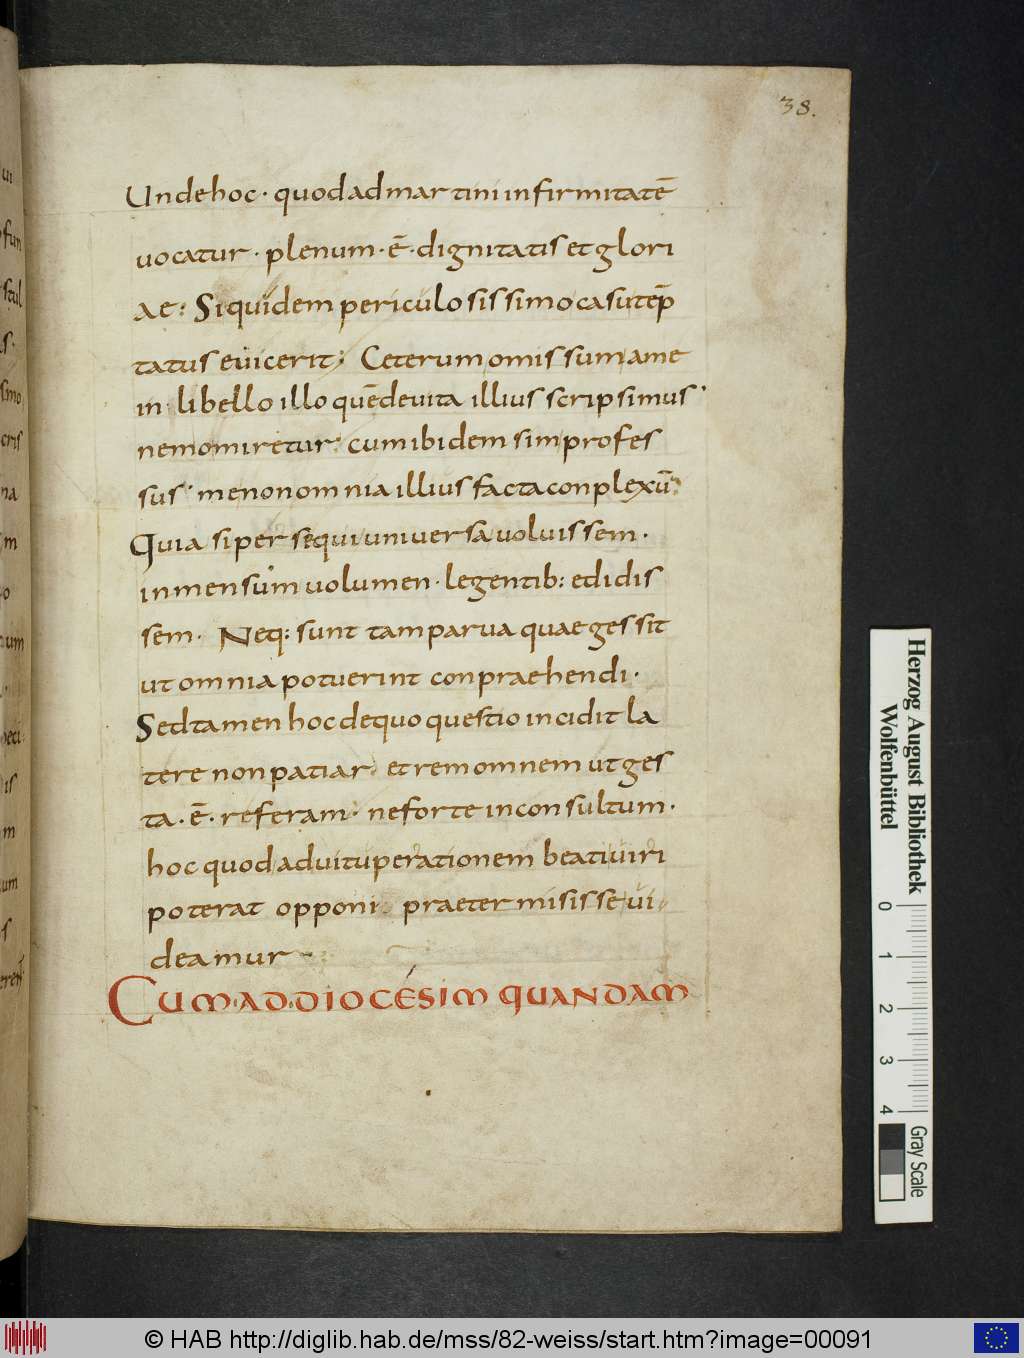 38.
Unde hoc · quod ad martini infirmitatē
vocatur · plenum · ē · dignitatis et glori
ae : Siquidem periculosissimo casu tēp
tatus evicerit ; Ceterum omissum a me
in libello illo quē de vita illius scripsimus ·
nemo miretur · cum ibidem sim profes
sus · me non omnia illius facta conplexū ;
Quia si persequi universa voluissem ·
inmensum volumen · legentib: edidis
sem · Neq: sunt tam parva quae gessit
ut omnia potuerint conpraehendi ·
Sed tamen hoc de quo questio incidit la
tere non patiar · et rem omnem ut ges
ta · ē · referam · ne forte inconsultum ·
hoc quod ad vituperationem beati viri
poterat opponi · praetermisisse vi
deamur ·
CUM · AD · DIOCÉSIM QUANDAM
Herzog August Bibliothek
Wolfenbüttel
0 1 2 3 4
Gray Scale
© HAB http://diglib.hab.de/mss/82-weiss/start.htm?image=00091